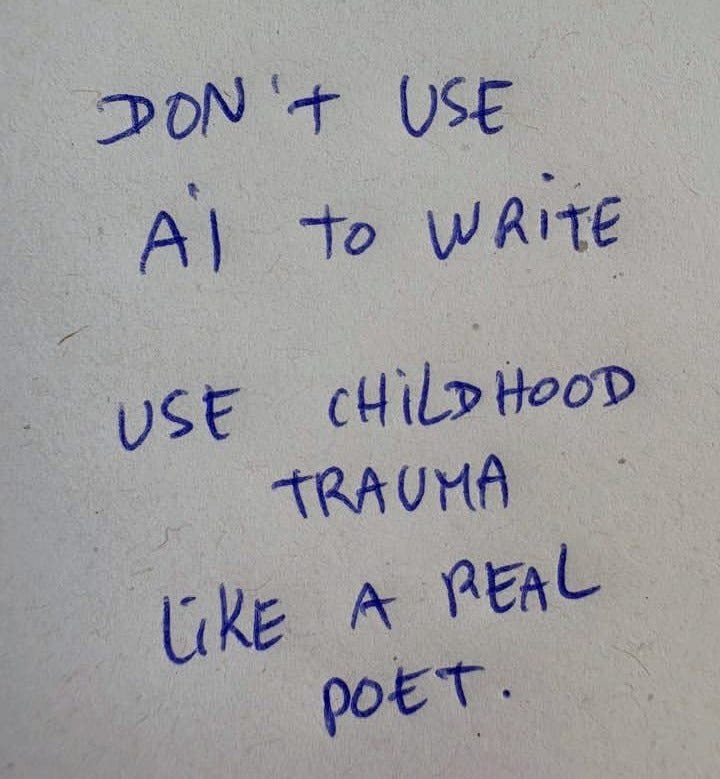 DON'T USE
Ai TO WRiTE
USE CHiLDHOOD
TRAUMA
LiKE A REAL
POET.